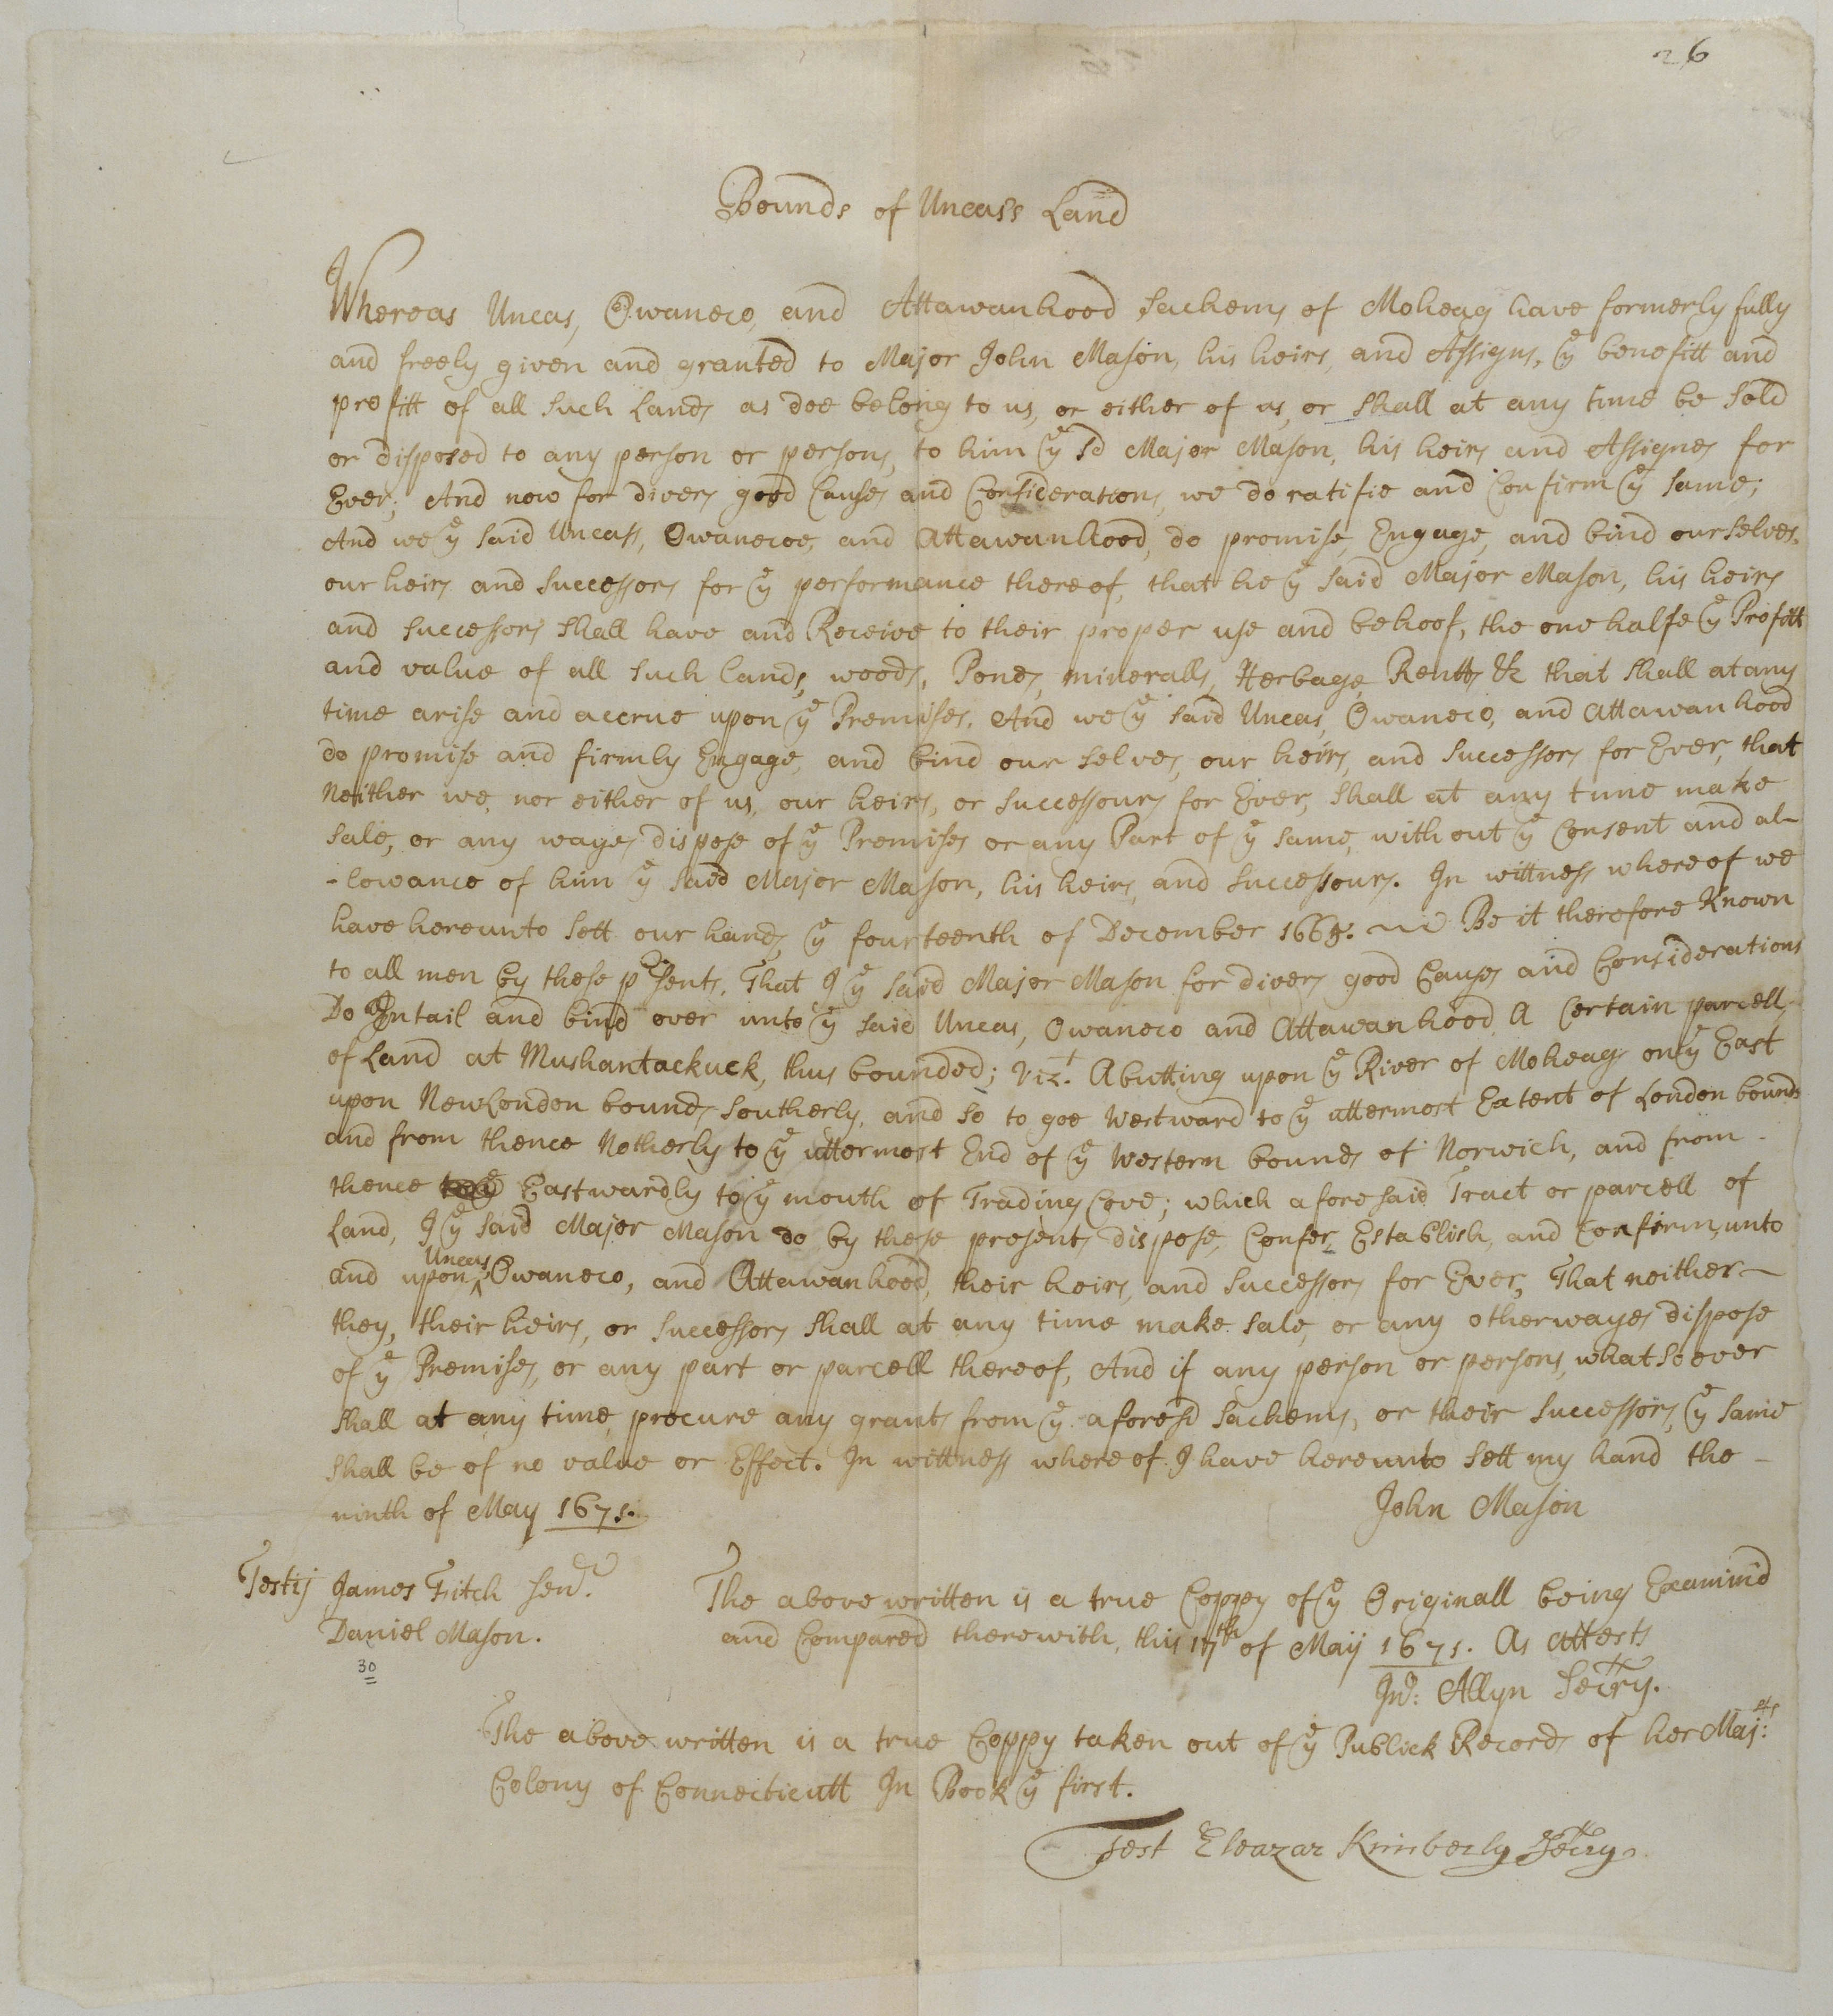 26
Bounds of Uncass Land
Whereas Uncas, Owaneco, and Attawanhood Sachems of Moheag have formerly fully
and freely given and granted to Major John Mason, his heirs, and Assigns, yᵉ benefitt and
profitt of all such Lands as doe belong to us, or either of us, or shall at any time be sold
or disposed to any person or persons, to him yᵉ sd Major Mason, his heirs and Assignes for
Ever; And now for divers good Causes and Considerations, we do ratifie and Confirm yᵉ same;
And we yᵉ said Uncass, Owanecoe, and Attawanhood, do promise, Engage, and bind ourselves,
our heirs and successors for yᵉ performance thereof, that he yᵉ said Major Mason, his heirs
and successors shall have and Receive to their proper use and behoof, the one halfe yᵉ Profitt
and value of all such lands, woods, Ponds, mineralls, Herbage, Rentts &c that shall at any
time arise and accrue upon yᵉ Premises. And we yᵉ said Uncas, Owaneco, and Attawanhood
do promise and firmly Engage, and bind our selves, our heirs, and successors for Ever, that
Neither we, nor either of us, our heirs, or successours for Ever, shall at any time make
sale, or any wayes dispose of yᵉ Premises or any Part of yᵉ same, without yᵉ Consent and al-
-lowance of him yᵉ said Major Mason, his heirs, and successours. In wittness whereof we
have hereunto sett our hands, yᵉ fourteenth of December 1665. Be it therefore Known
to all men by these pʳsents, That I yᵉ said Major Mason for divers good Causes and Considerations
Do Intail and bind over unto yᵉ said Uncas, Owaneco and Attawanhood, A Certain parcell
of Land at Mushantackuck, thus bounded; vizᵗ. Abutting upon yᵉ River of Moheag on yᵉ East
upon New London bounds Southerly, and so to goe Westward to yᵉ uttermost Extent of London bounds
and from thence Notherly to yᵉ uttermost End of yᵉ Western bounds of Norwich, and from
thence Eastwardly to yᵉ mouth of Trading Cove; which aforesaid Tract or parcell of
Land, I yᵉ said Major Mason do by these presents dispose, Confer, Establish, and Confirm, unto
and upon Uncas, Owaneco, and Attawanhood, their heirs, and successors for Ever, That neither
they, their heirs, or successors shall at any time make sale, or any otherwayes dispose
of yᵉ Premises, or any part or parcell thereof, And if any person or persons, whatsoever
shall at any time, procure any grants from yᵉ aforesd Sachems, or their successors, yᵉ same
shall be of no value or Effect. In wittness whereof I have hereunto sett my hand the
ninth of May 1671.
John Mason
Testis James Fitch Senʳ.
Daniel Mason.
30
The above written is a true Coppey of yᵉ Originall being Examind
and Compared therewith, this 17th of Maij 1671. As attests
Jnᵒ: Allyn Secrʸ.
The above written is a true Coppy taken out of yᵉ Publick Records of her Majᵗⁱᵉˢ:
Colony of Connecticutt In Book yᵉ first.
Test Eleazar Kimberly Secʳʸ